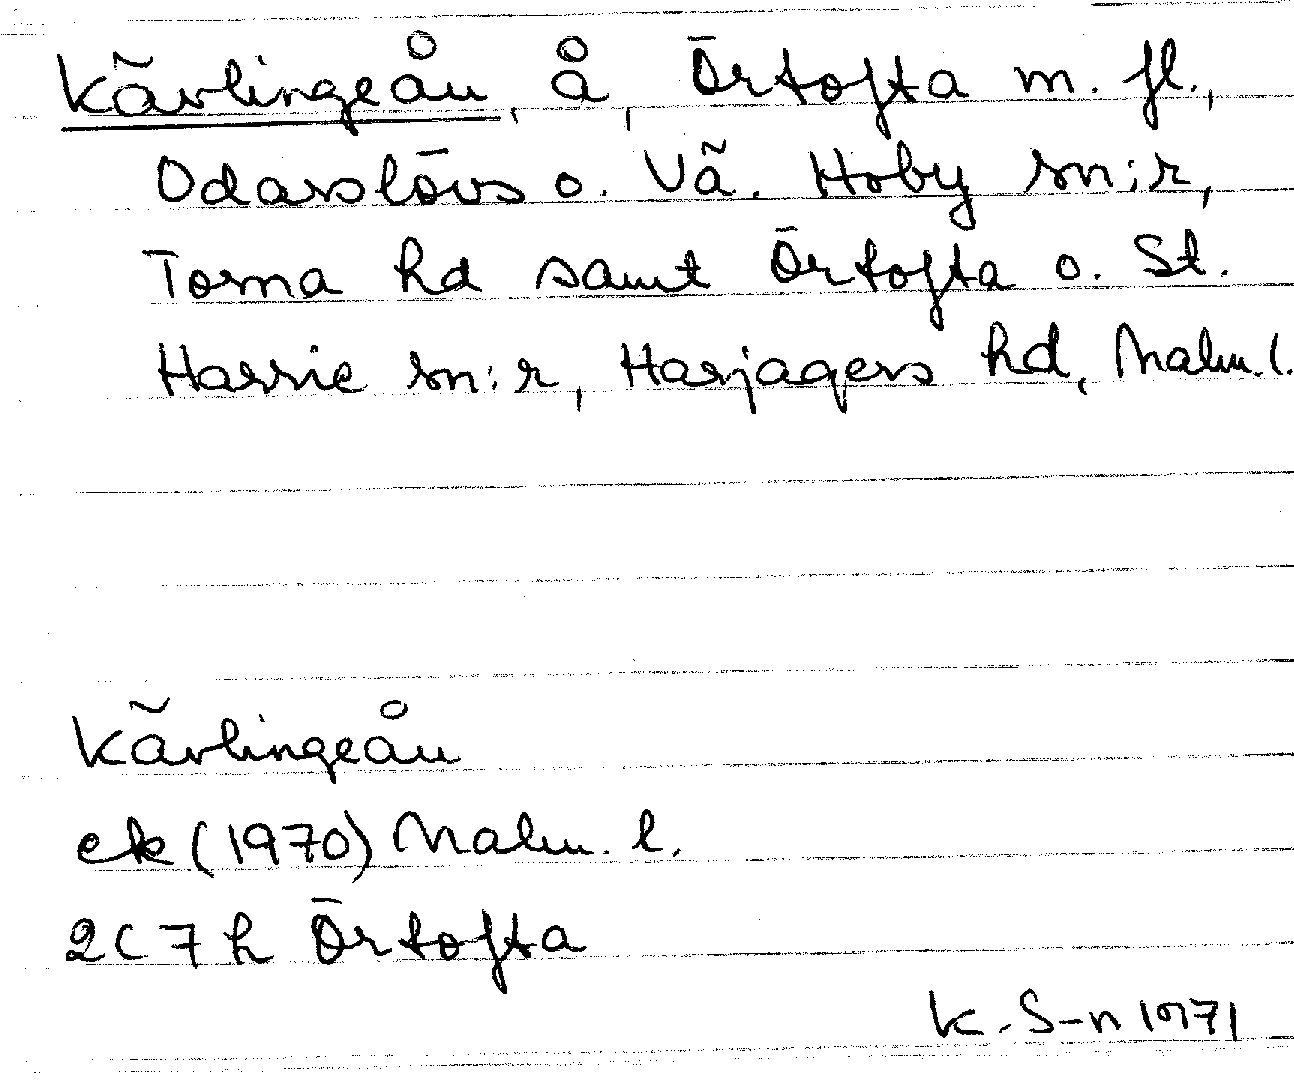 Kävlingeån, å, Örtofta m. fl.,
Odarslövs o. Vä. Hoby sn:r,
Torna hd samt Örtofta o. St.
Harrie sn:r, Harjagers hd, Malm. l.
Kävlingeån
ek (1970) Malm. l.
2C 7h Örtofta
K. S-n 1971